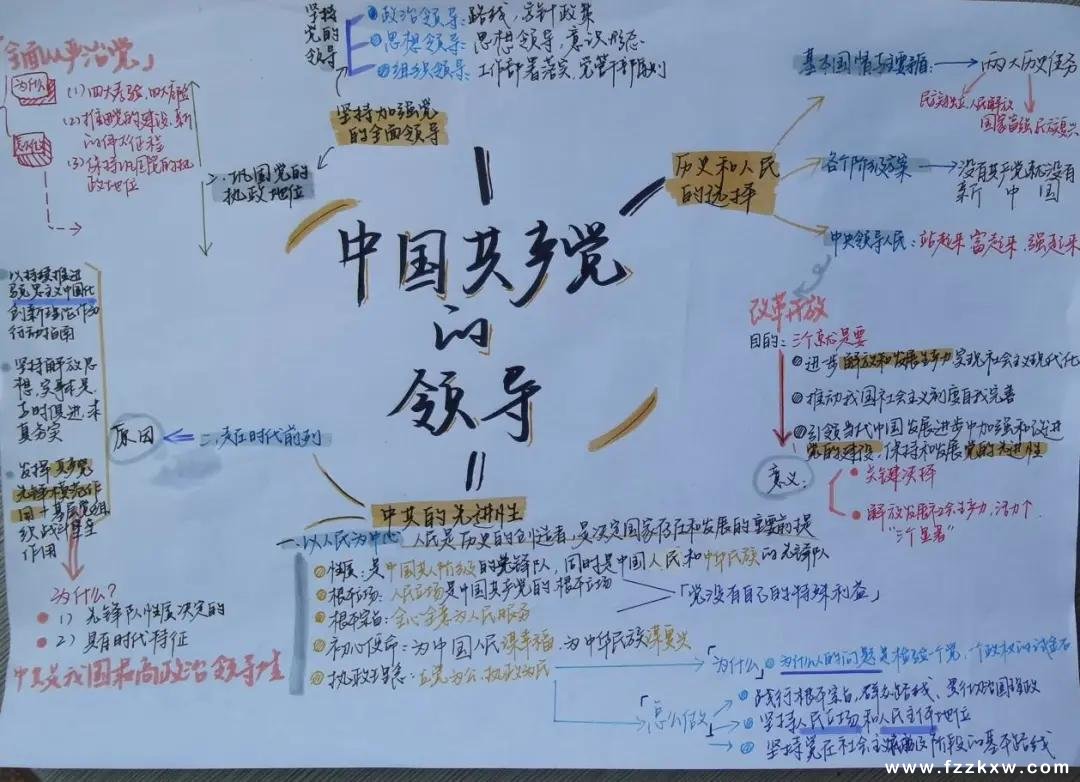 中国共产党
的
领导
坚持
党的
领导
政治领导:路线,方针政策
思想领导:思想领导,意识形态
组织领导:工作部署落实,党管干部原则
坚持加强党
的全面领导
二.巩固党的
执政地位
「全面从严治党」
为什么
(1)四大考验,四大危险
(2)推进党的建设新
的伟大工程
(3)保持巩固党的执
政地位
历史和人民
的选择
基本国情与主要矛盾:
两大历史任务
民族独立,人民解放
国家富强,民族复兴
各个阶级方案
没有共产党就没有
新中国
中央领导人民:站起来 富起来 强起来
改革开放
目的:三个就是要
进步解放和发展生产力实现社会主义现代化
推动我国社会主义制度自我完善
引领当代中国发展进步中加强和改进
党的建设,保持和发展党的先进性
意义:
关键决择
解放发展社会生产力,活力个
"三个显著"
中共的先进性
一.以人民为中心
人民是历史的创造者,是决定国家存在和发展的重要前提
性质:是中国工人阶级的先锋队,同时是中国人民和中华民族的先锋队
根本立场:人民立场是中国共产党的根本立场
根本宗旨:全心全意为人民服务
初心使命:为中国人民谋幸福,为中华民族谋复兴
执政理念:立党为公,执政为民
「党没有自己的特殊利益」
「为什么」
为什么人的问题是检验一个党、个政权的试金石
「怎么做」
践行根本宗旨,群众路线,
坚持人民立场和人民主体地位
坚持党在社会主义初级阶段的基本路线
二.走在时代前列
原因
以持续推进
马克思主义中国化
创新理论作为
行动指南
坚持解放思
想,实事求是
与时俱进,求
真务实
发挥共产党
先锋模范作
用+基层党组
织战斗堡垒
作用
为什么?
1)先锋队性质决定的
2)具有时代特征
中共是我国最高政治领导力量
www.fzzkxw.com